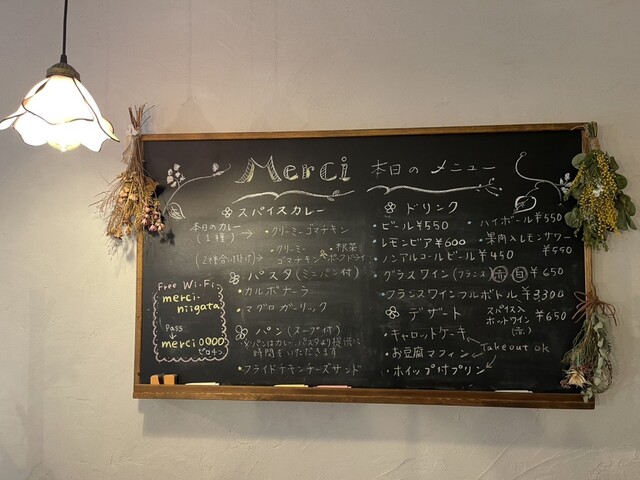 Merci 本日のメニュー
スパイスカレー
本日のカレー
(1種)→ ・クリーミーゴマチキン
(2種合いがけ)→ クリーミーゴマチキン 根菜ポークドライ
パスタ(ミニパン付)
・カルボナーラ
・マグロガーリック
パン(スープ付)
※パンはカレー、パスタより提供に
時間をいただきます
・フライドチキンチーズサンド
Free Wi-Fi
merci-
niigata
Pass
merci0000
ゼロ4つ
ドリンク
・ビール ¥550
・ハイボール ¥550
・レモンビア ¥600
・果肉入レモンサワー
¥550
・ノンアルコールビール ¥450
・グラスワイン(フランス) 赤 白 ¥650
・フランスワインフルボトル ¥3,300
スパイス入
ホットワイン ¥650
(赤)
デザート
・キャロットケーキ
・お豆腐マフィン
・ホイップ付プリン
Takeout ok